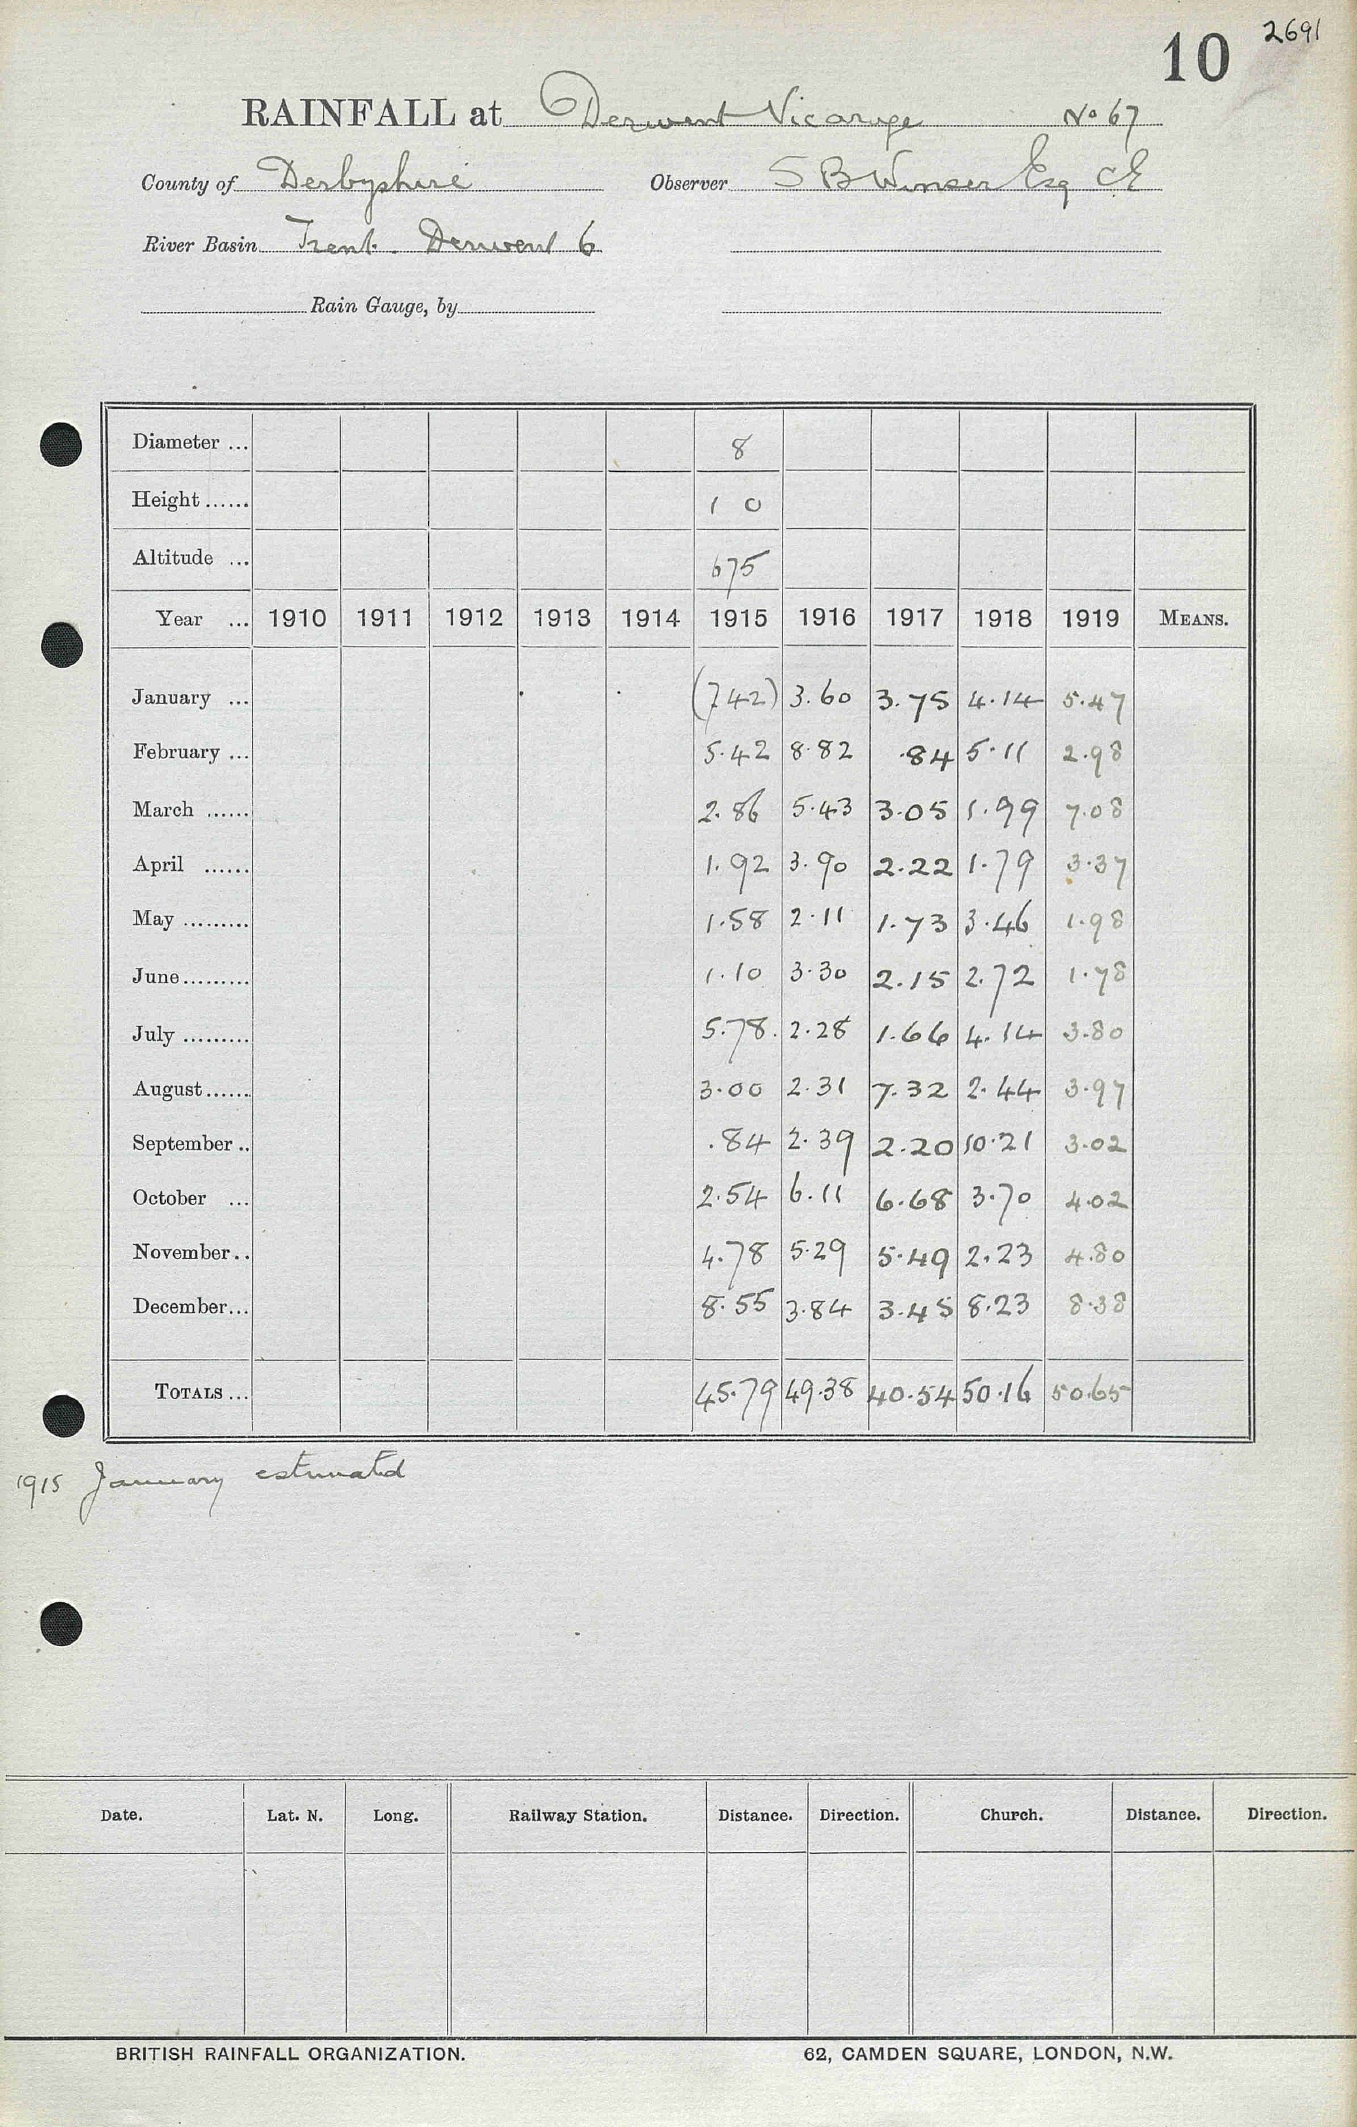 10 2691
RAINFALL at Derwent Vicarage No 67
County of Derbyshire Observer S B Winser Esq CE
River Basin Trent. Derwent 6
Rain Gauge, by
Diameter ... 8
Height ...... 1 0
Altitude ... 675
Year ... 1910 1911 1912 1913 1914 1915 1916 1917 1918 1919 MEANS.
January ... (7.42) 3.60 3.75 4.14 5.47
February ... 5.42 8.82 .84 5.11 2.98
March ...... 2.86 5.43 3.05 1.99 7.08
April ...... 1.92 3.90 2.22 1.79 3.37
May ......... 1.58 2.11 1.73 3.46 1.98
June ......... 1.10 3.30 2.15 2.72 1.78
July ......... 5.78. 2.28 1.66 4.14 3.80
August ...... 3.00 2.31 7.32 2.44 3.97
September .. .84 2.39 2.20 10.21 3.02
October ... 2.54 6.11 6.68 3.70 4.02
November .. 4.78 5.29 5.49 2.23 4.80
December ... 8.55 3.84 3.45 8.23 8.38
TOTALS ... 45.79 49.38 40.54 50.16 50.65
1915 January estimated
Date. Lat. N. Long. Railway Station. Distance. Direction. Church. Distance. Direction.
BRITISH RAINFALL ORGANIZATION. 62, CAMDEN SQUARE, LONDON, N.W.